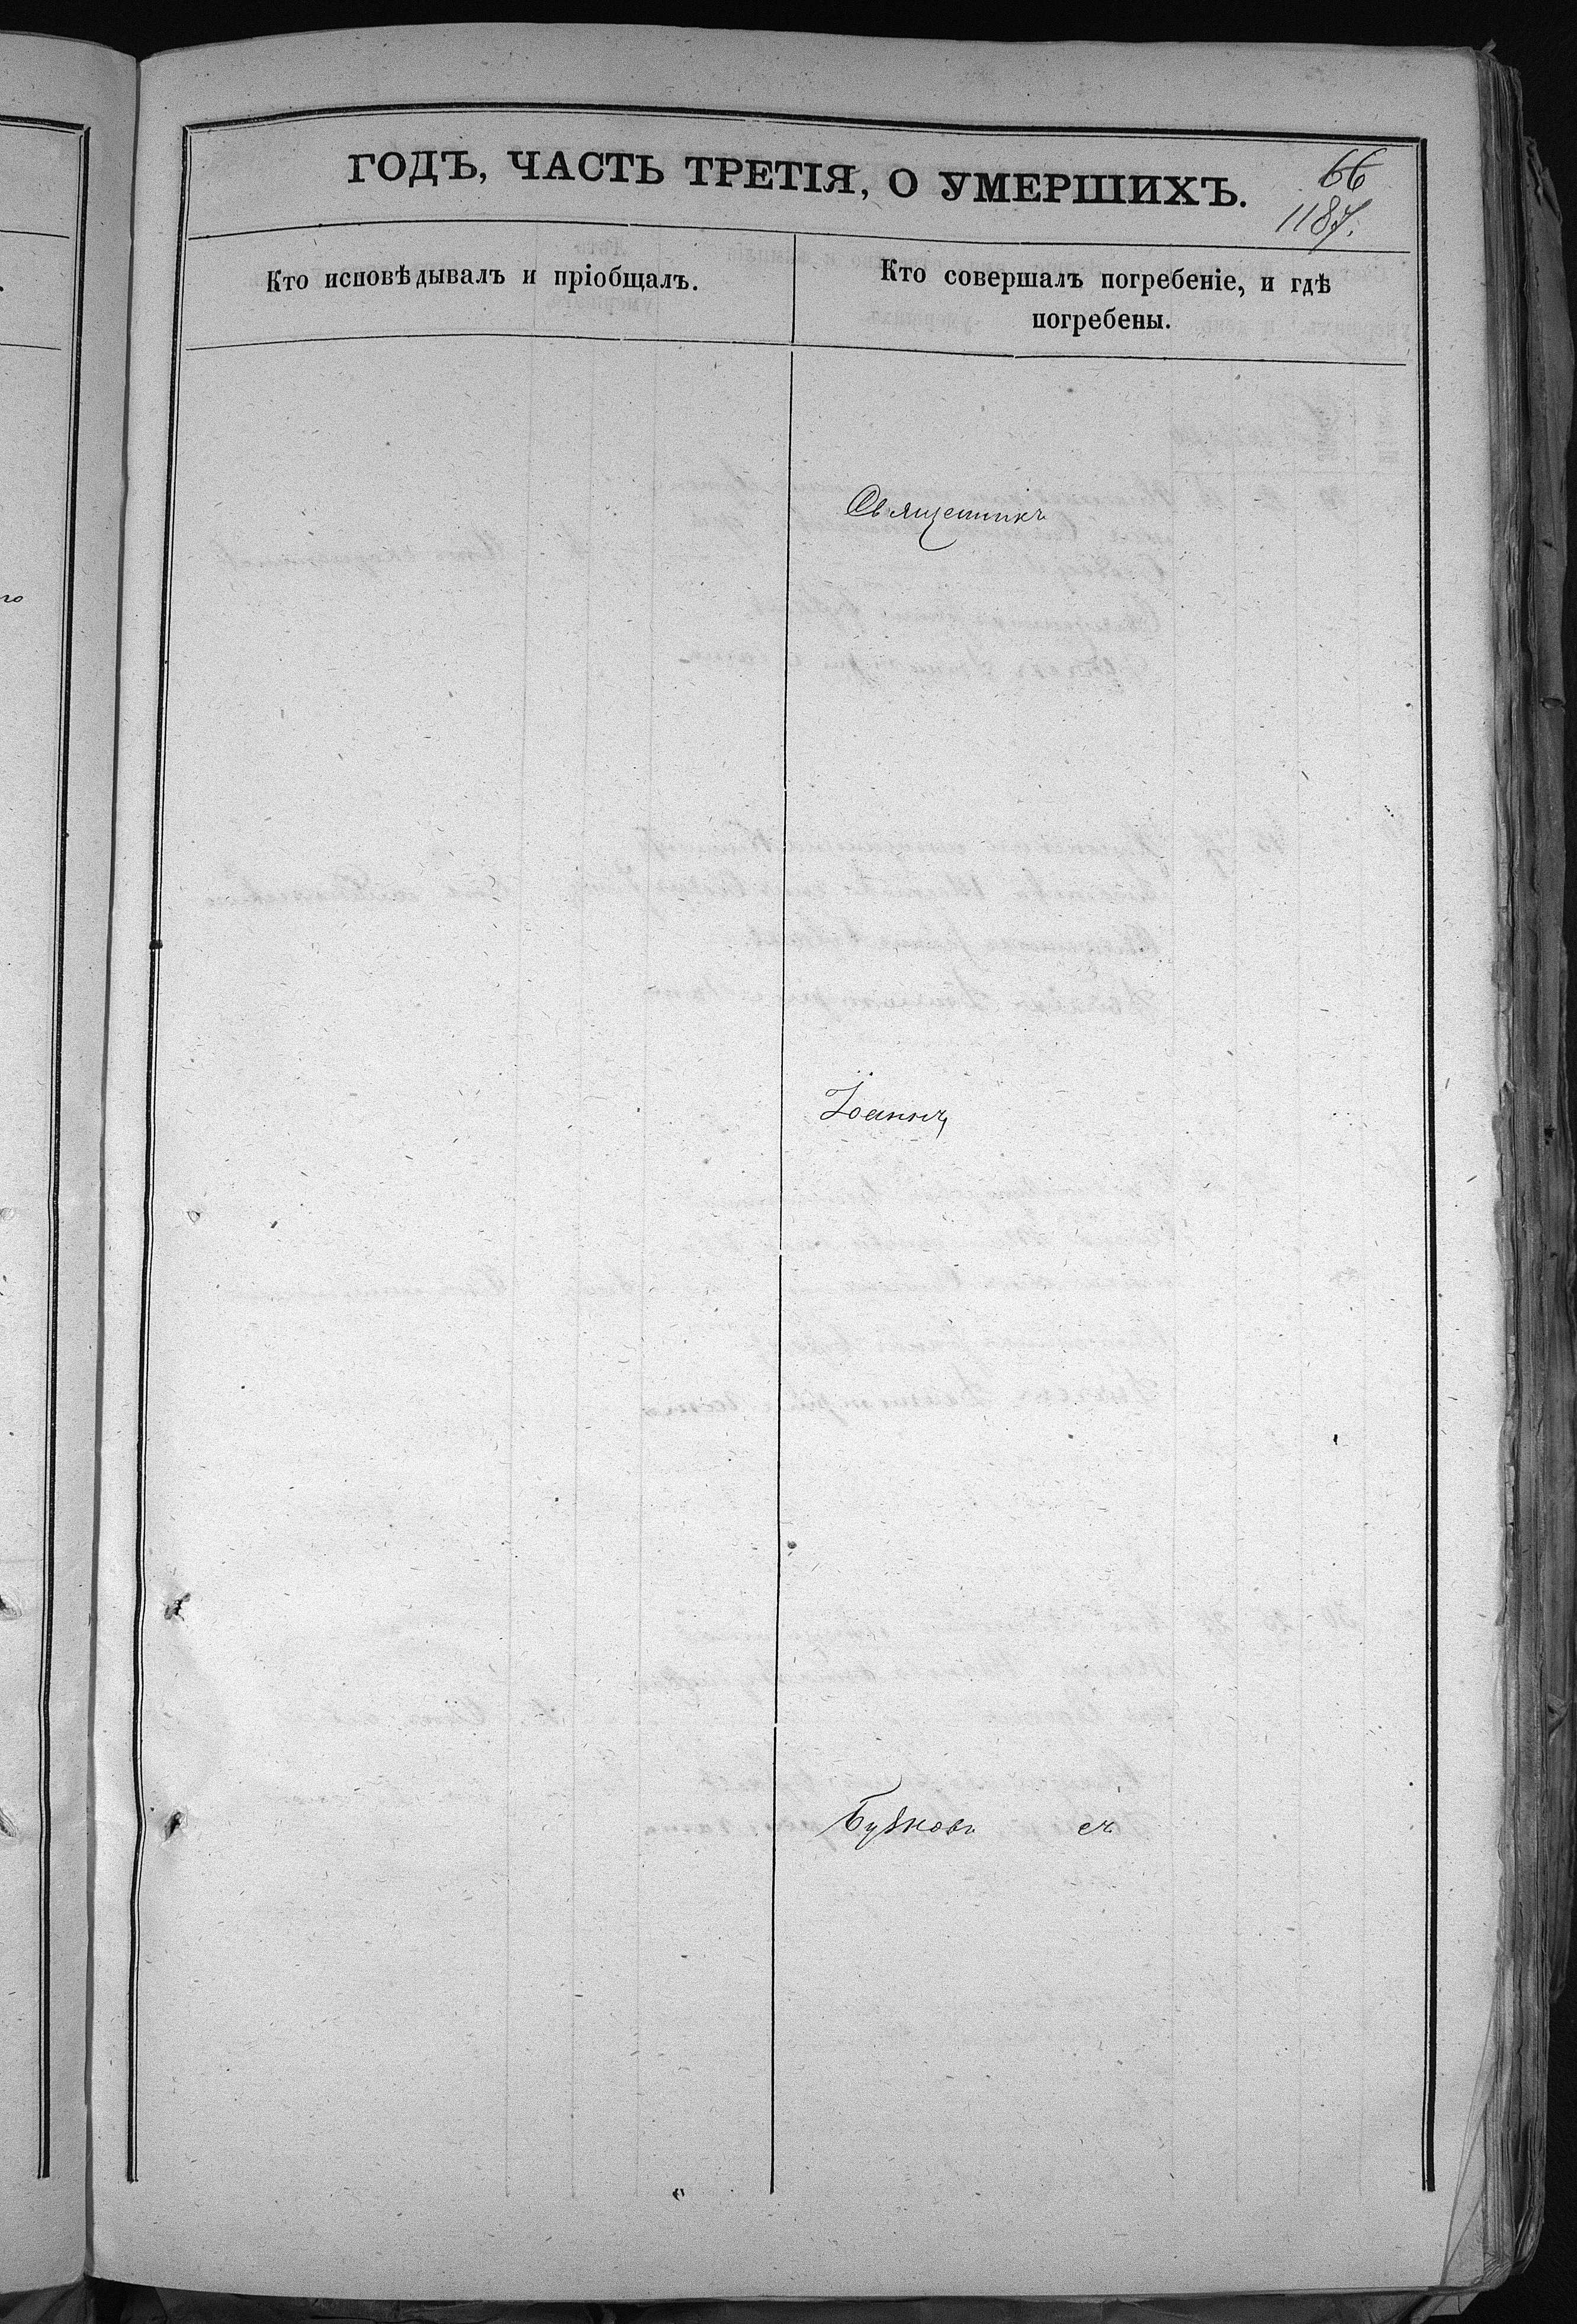 ГОДЪ, ЧАСТЬ ТРЕТІЯ, О УМЕРШИХЪ.
66
1187.
Кто исповѣдывалъ и пріобщалъ.
Кто совершалъ погребеніе, и гдѣ
погребены.
Священникъ
Іоаннъ